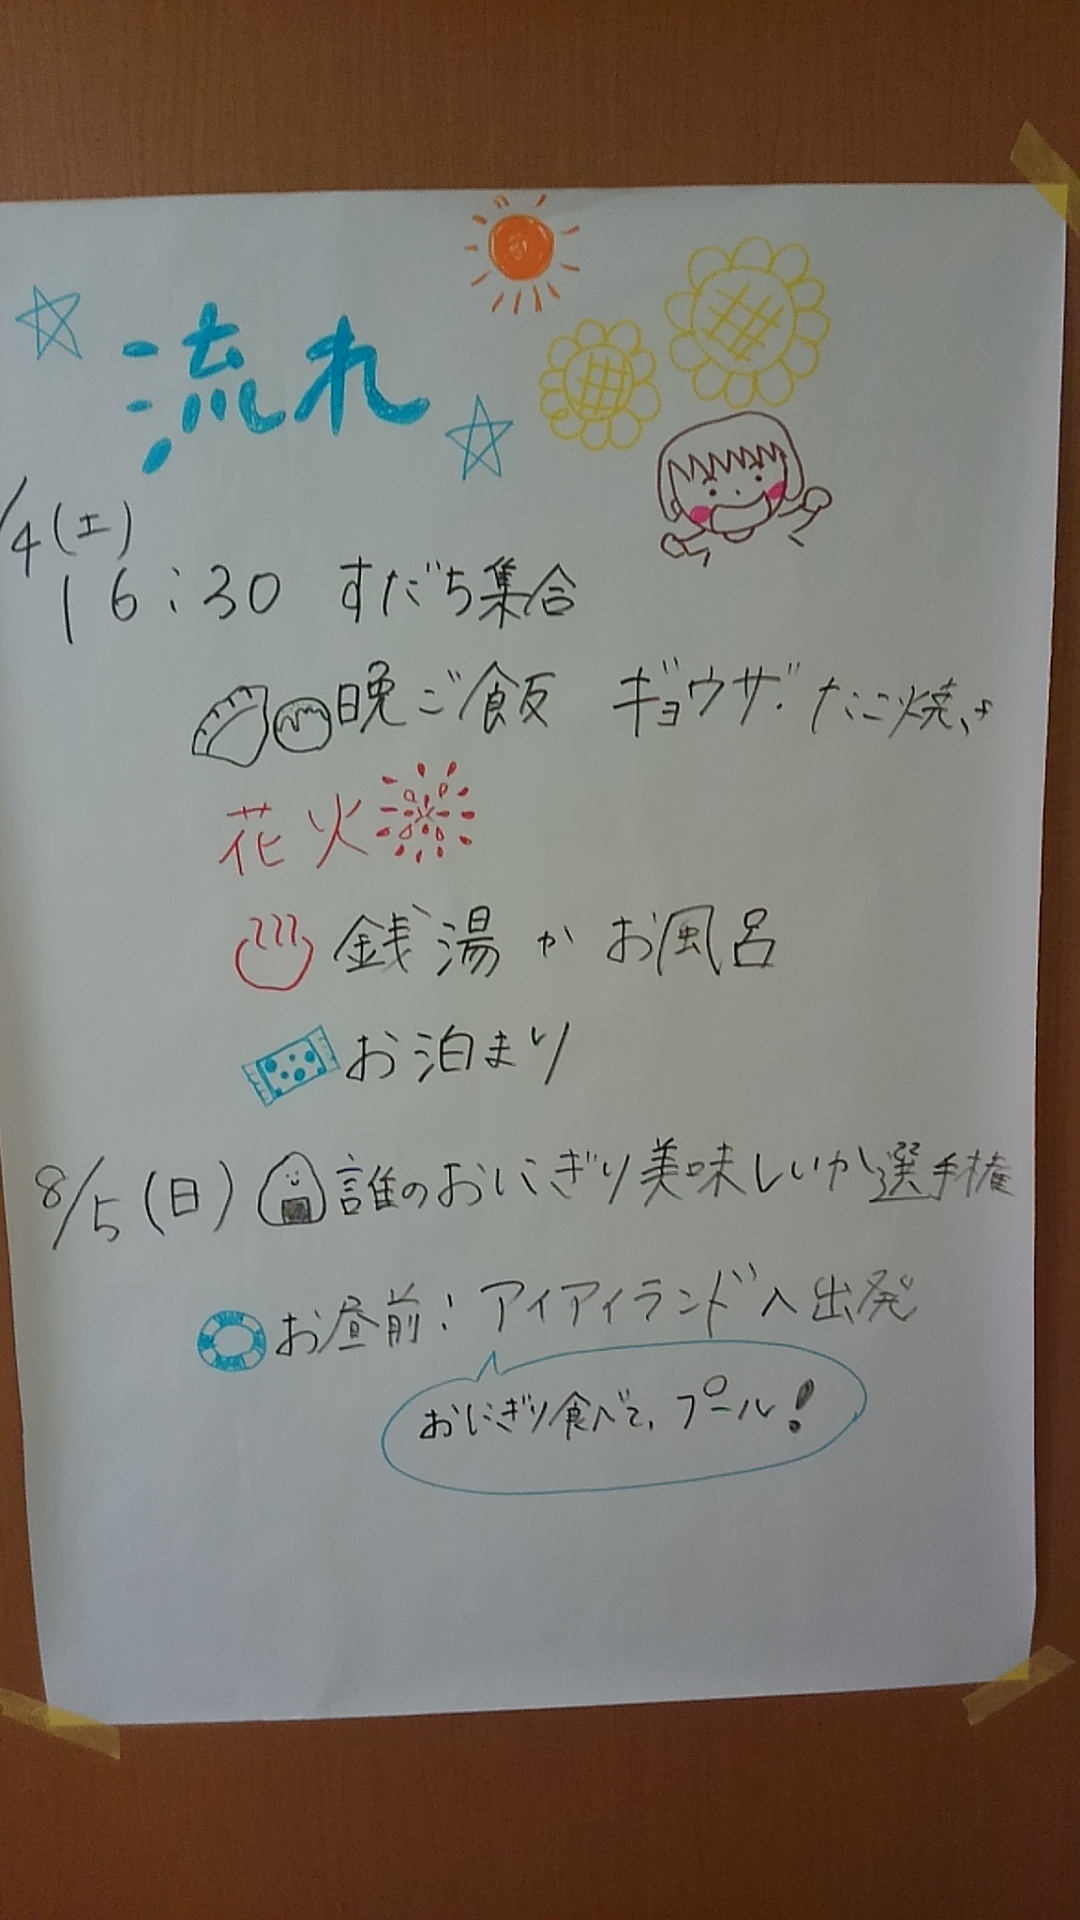 流れ
/4(土)
16:30 すだち集合
晩ご飯 ギョウザ・たこ焼き
花火
銭湯かお風呂
お泊まり
8/5(日) 誰のおにぎり美味しいか選手権
お昼前:アイアイランドへ出発
おにぎり食べて、プール!